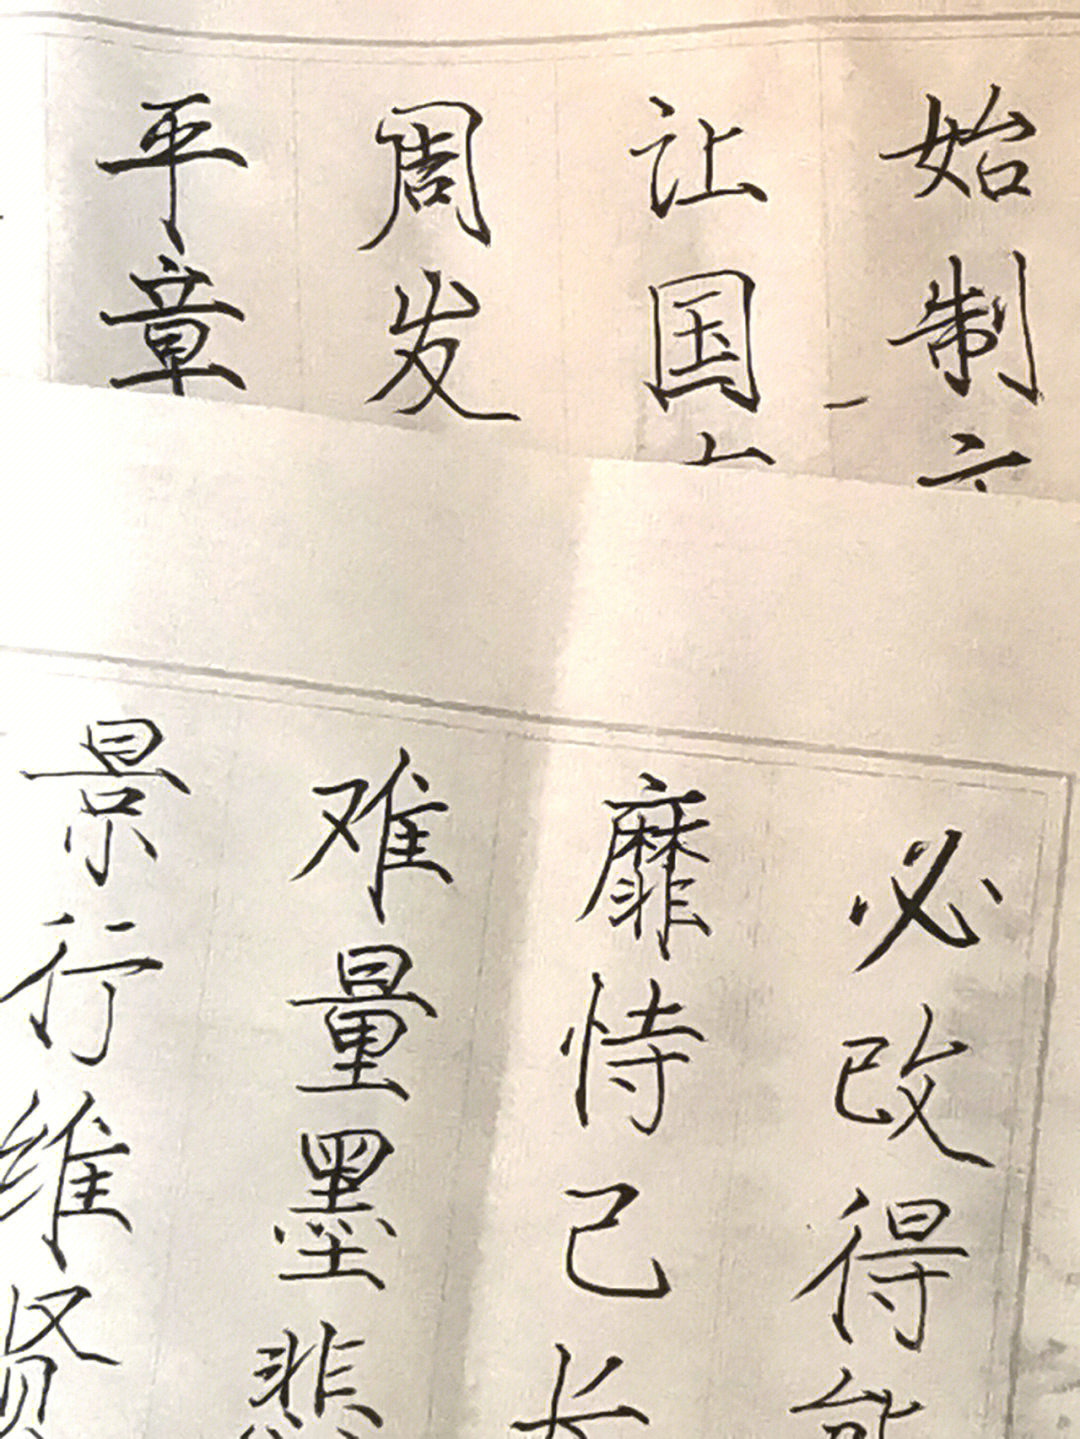 始制文
让国
周发
平章
必改得能
靡恃己长
难量墨悲
景行维贤